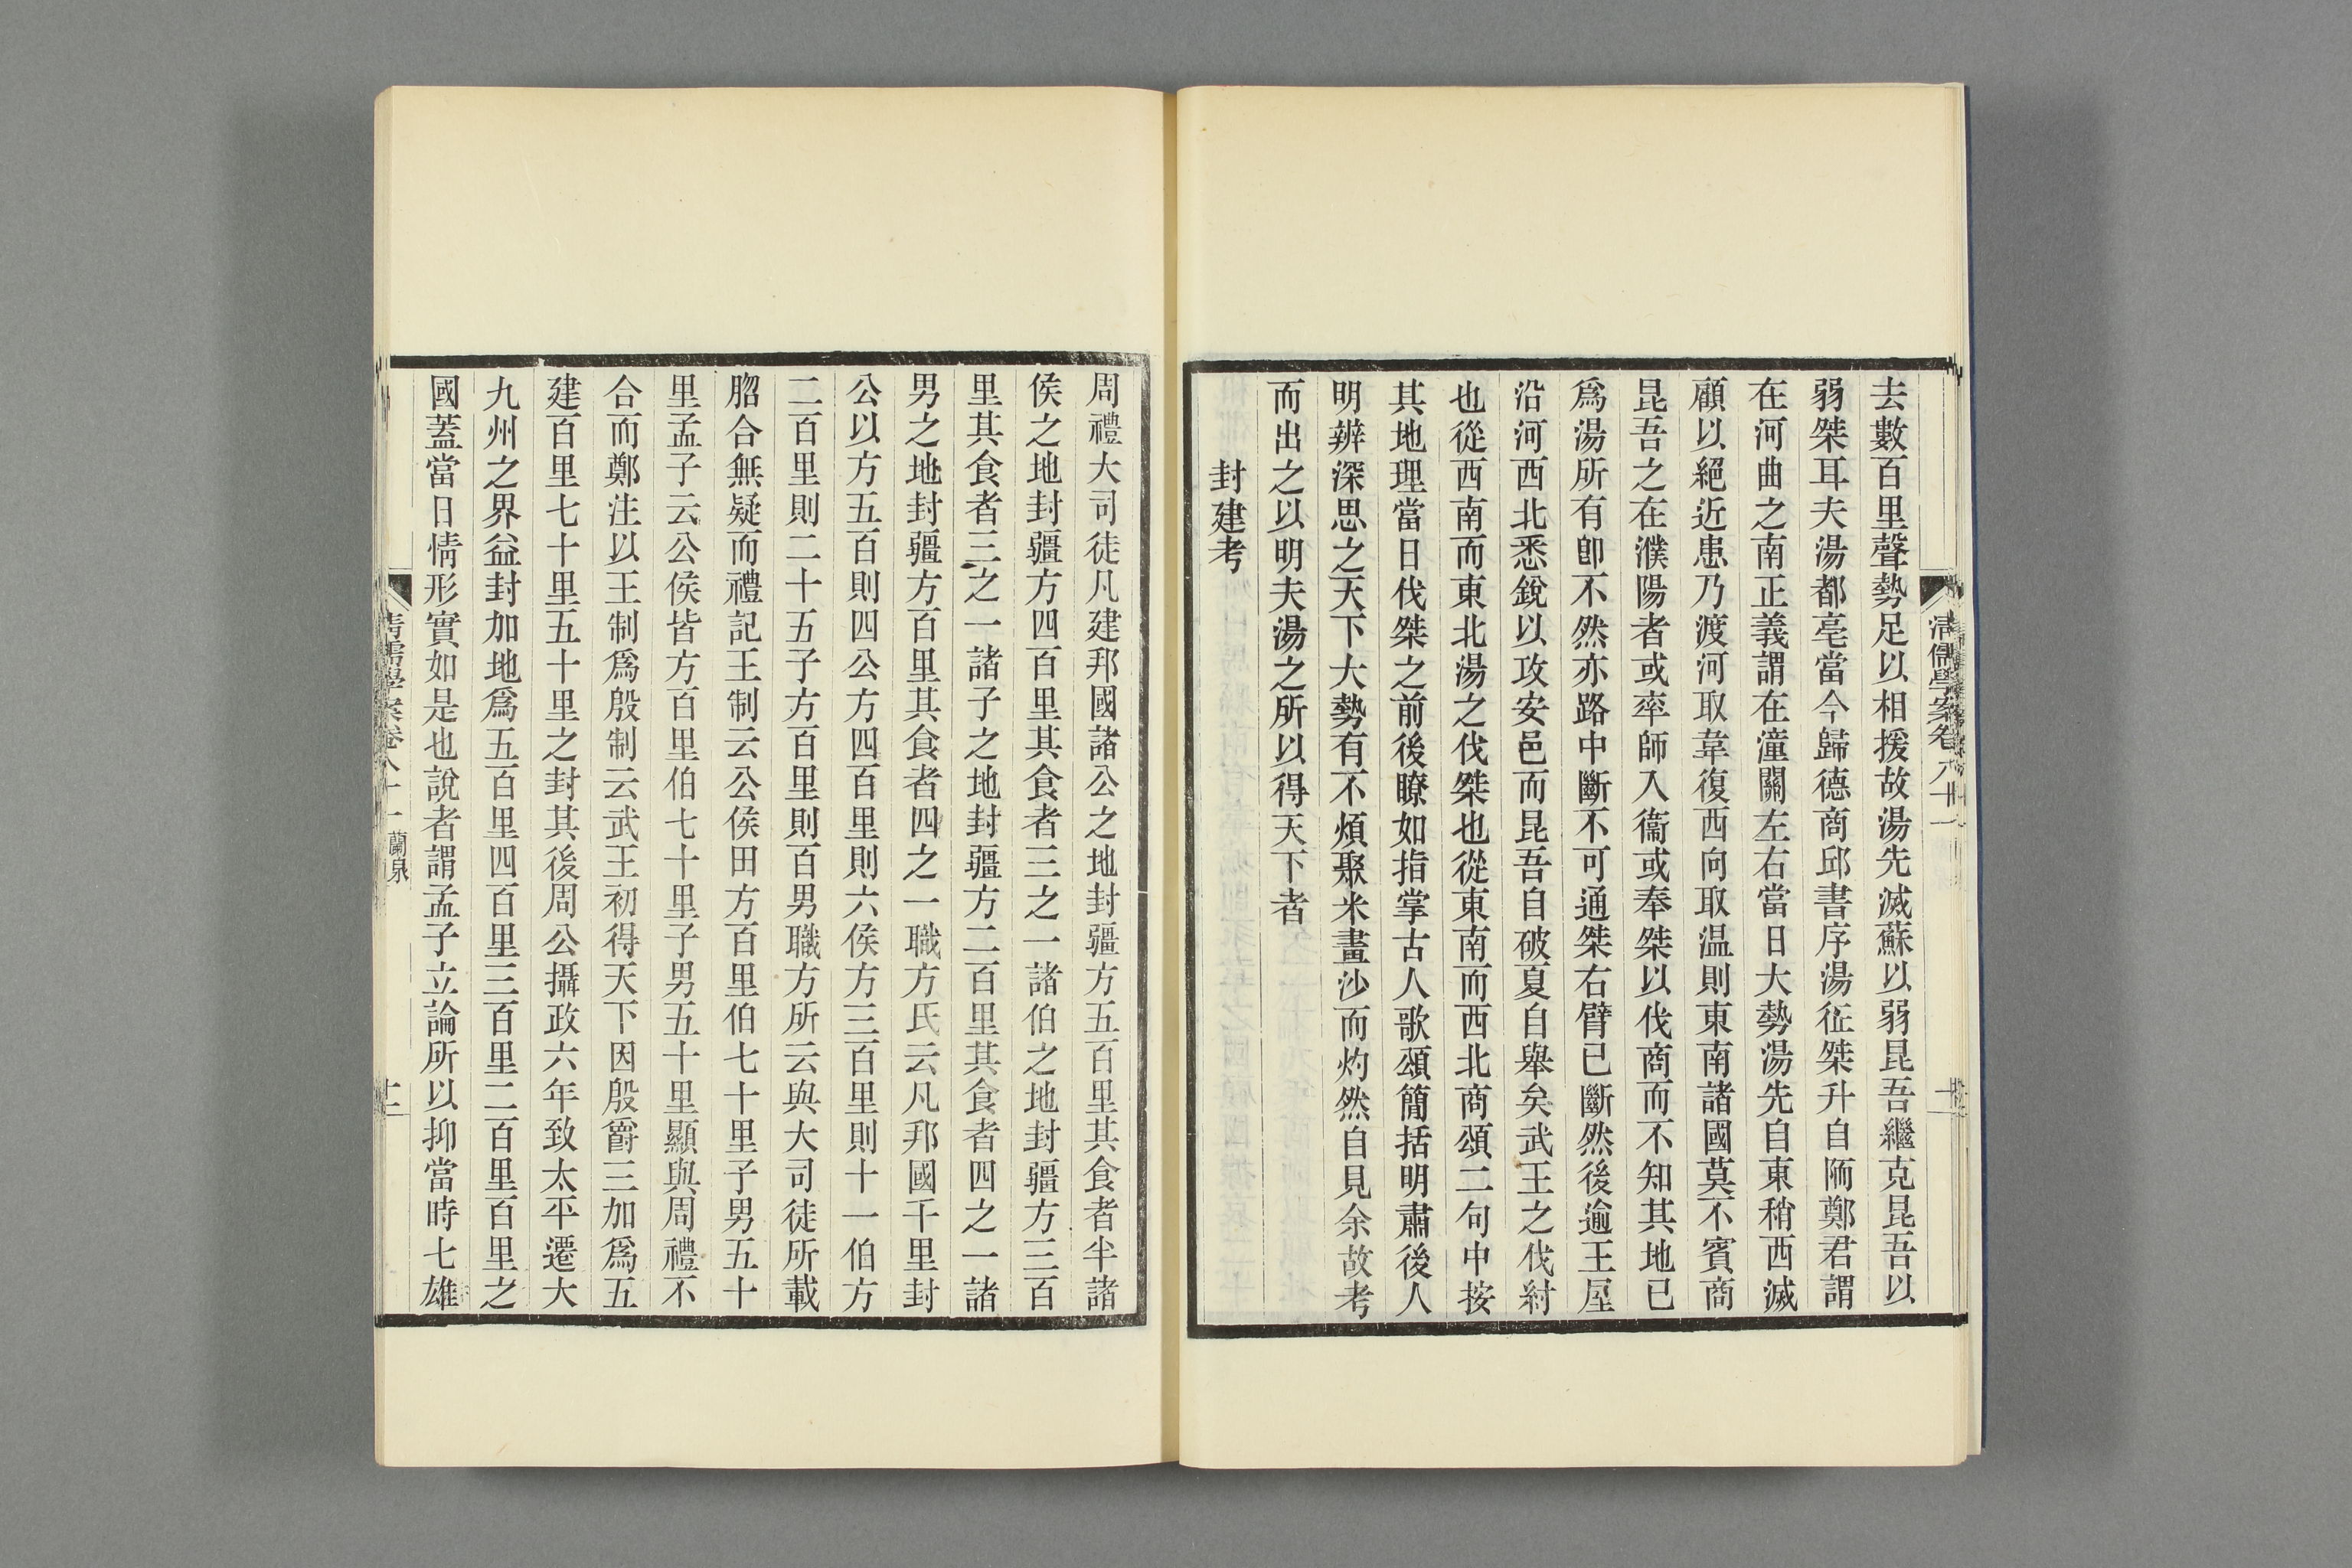 去數百里聲勢足以相援故湯先滅蘇以弱昆吾繼克昆吾以
弱桀耳夫湯都亳當今歸德商邱書序湯征桀升自陑鄭君謂
在河曲之南正義謂在潼關左右當日大勢湯先自東稍西滅
顧以絕近患乃渡河取韋復西向取温則東南諸國莫不賓商
昆吾之在濮陽者或率師入衞或奉桀以伐商而不知其地已
爲湯所有卽不然亦路中斷不可通桀右臂已斷然後逾王屋
沿河西北悉銳以攻安邑而昆吾自破夏自舉矣武王之伐紂
也從西南而東北湯之伐桀也從東南而西北商頌二句中按
其地理當日伐桀之前後瞭如指掌古人歌頌簡括明肅後人
明辨深思之天下大勢有不煩聚米畫沙而灼然自見余故考
而出之以明夫湯之所以得天下者
封建考
周禮大司徒凡建邦國諸公之地封疆方五百里其食者半諸
侯之地封疆方四百里其食者三之一諸伯之地封疆方三百
里其食者三之一諸子之地封疆方二百里其食者四之一諸
男之地封疆方百里其食者四之一職方氏云凡邦國千里封
公以方五百則四公方四百里則六侯方三百里則十一伯方
二百里則二十五子方百里則百男職方所云與大司徒所載
脗合無疑而禮記王制云公侯田方百里伯七十里子男五十
里孟子云公侯皆方百里伯七十里子男五十里顯與周禮不
合而鄭注以王制爲殷制云武王初得天下因殷爵三加爲五
建百里七十里五十里之封其後周公攝政六年致太平遷大
九州之界益封加地爲五百里四百里三百里二百里百里之
國蓋當日情形實如是也說者謂孟子立論所以抑當時七雄
清儒學案卷八十一 蘭泉
十二